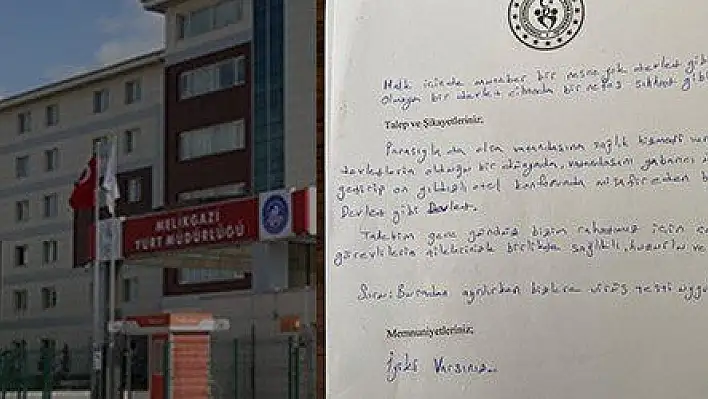 MELİKGAZİ
YURT MÜDÜRLÜĞÜ
Halk içinde muteber bir nesne yok devlet gibi
Olmaya bir devlet cihanda bir nefes sıhhat gibi
Talep ve Şikayetleriniz;
Parasıyla da olsa vatandaşına sağlık hizmeti
devletlerin olduğu bir dünyada, vatandaşını yabancı
getirip on yıldızlı otel konforunda misafir eden
Devlet gibi Devlet.
Talebim gece gündüz bizim rahatımız için
görevlilerin aileleriyle birlikte sağlıklı, huzurlu ve
Soru: Buradan ayrılırken bizlere virüs testi
Memnuniyetleriniz;
İyiki Varsınız..